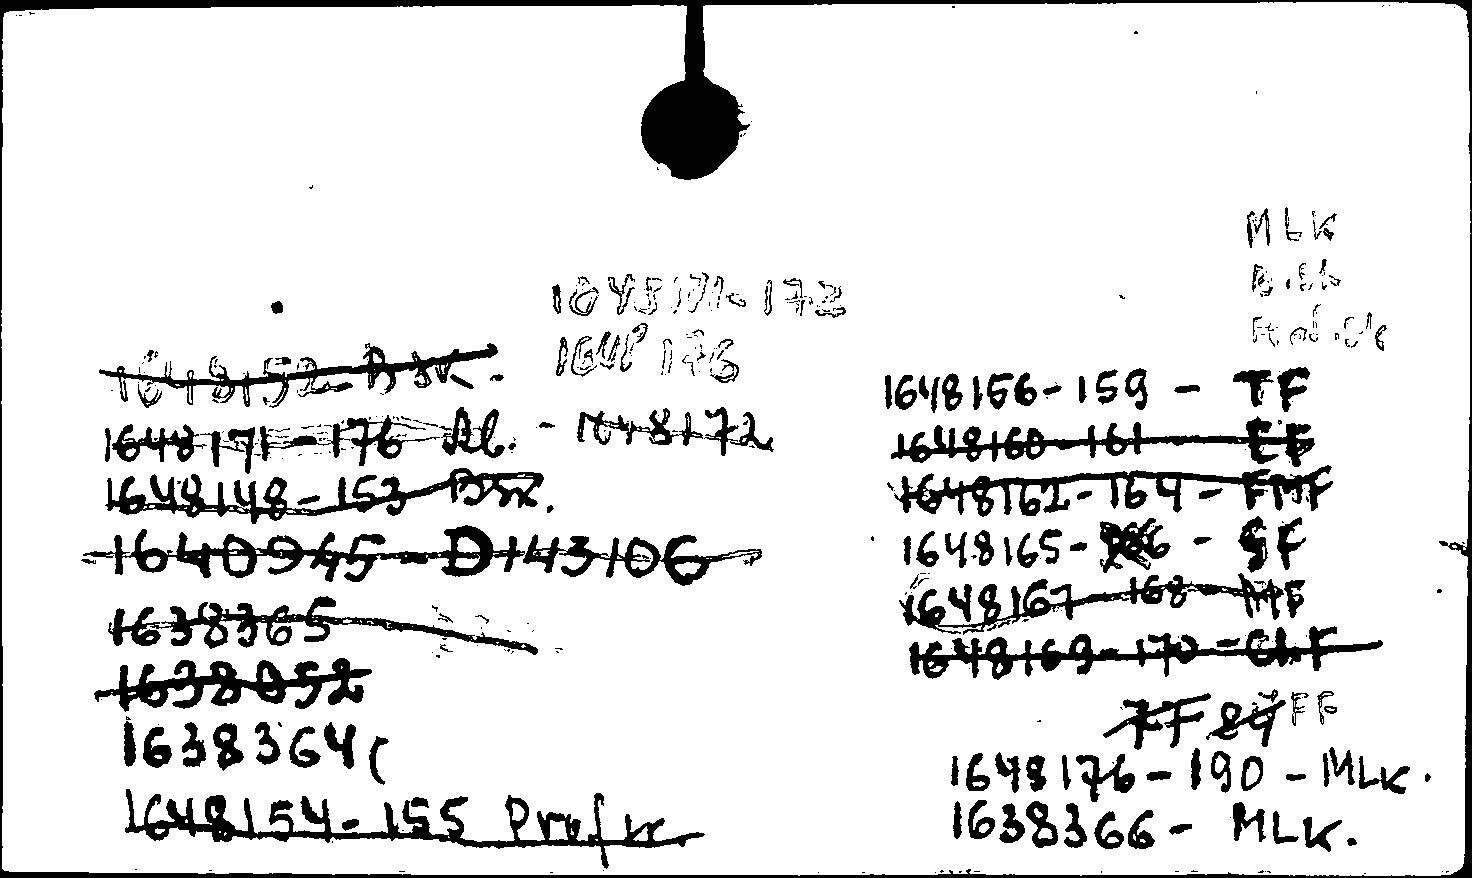 1648171-172
1648 176
1648152-Bsk.
1648171-176 Al. - 1648172
1648148-153 Bsk.
1640945-D143106
1638365
1638052
1638364
1648154-155
MLK
1648156-159 - TF
1648160-161 EF
1648162-164- FMF
1648165- - SF
1648167-168-MF
1648169-170-ChF
FF
1648176-190-MLK.
1638366- MLK.